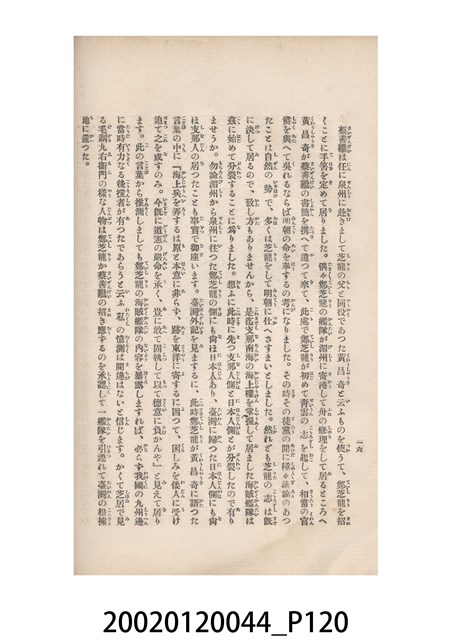 一六
蔡善繼は任に泉州に赴きまして芝龍の父と同役であつた黃昌奇と云ふものを使うて、鄭芝龍を招
くことに手筈を定めて居りました。偶々鄭芝龍の艦隊が湄州に寄港して舟の修理をして居るところへ
黃昌奇が蔡善繼の書簡を携へて遣つて來て、此處で鄭芝龍が初めて靑雲の志を起して、相當の官
爵を與へて吳れるならば明朝の命を奉ずるの考になりました。この時その徒黨の間に種々議論のあつ
たことは自然の勢で、多くは芝龍をして明朝に仕へさすまいとしました。然れども芝龍の志は旣
に決して居るので、致し方もありませんから、是迄支那南海の海上權を掌握して居ました海賊艦隊は
茲に始めて分裂することに爲りました。想ふに此時に先つ支那人側と日本人側とが分裂したので有り
ませうか。勿論湄州から泉州に往つた鄭芝龍の側にも尙ほ日本人あり、臺灣に歸つた日本人側にも尙
ほ支那人の居つたことも事實で御座います。臺灣外記を見まするに、此時鄭芝龍が黃昌奇に語つた
言葉の中に『海上兵を弄するは原と本意に非らず、跡を東洋に寄するに因つて、困しみを倭人に受け
迫て之を成すのみ。今旣に道憲の嚴命を承く、豈に敢て固執して以て德意に負かんや』と見えて居り
ます。此の言葉から推測しましても鄭芝龍の海賊艦隊の內容を暴露しますれば、必らず我國の九州邊
に當時有力なる後援者が有つたであらうと云ふ私の憶測は間違はないと信じます。かくて芝居で見
る毛剃九右衞門の樣な人物は鄭芝龍が蔡善繼の招き應ずるのを承認して一艦隊を引連れて臺灣の根據
地に還つた。
20020120044_P120